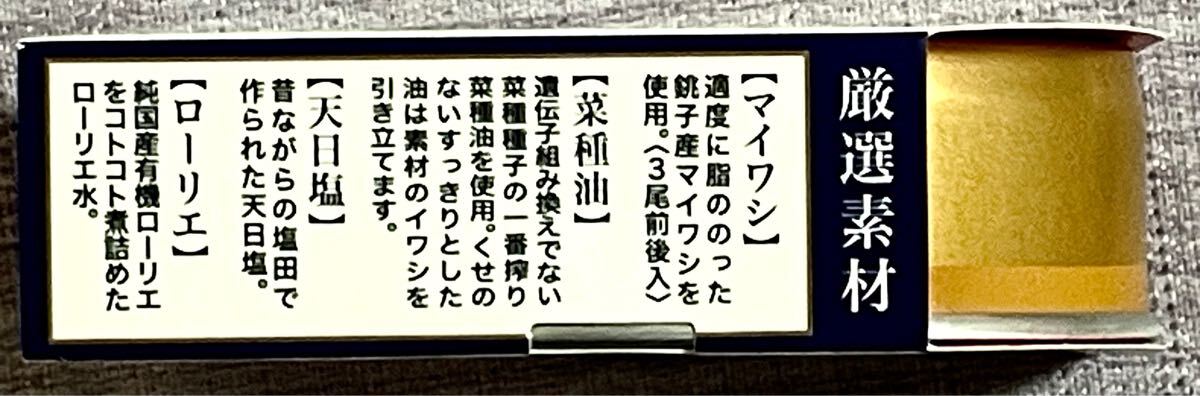 厳選素材
【マイワシ】
適度に脂ののった
銚子産マイワシを
使用。〈3尾前後入〉
【菜種油】
遺伝子組み換えでない
菜種種子の一番搾り
菜種油を使用。くせの
ないすっきりとした
油は素材のイワシを
引き立てます。
【天日塩】
昔ながらの塩田で
作られた天日塩。
【ローリエ】
純国産有機ローリエ
をコトコト煮詰めた
ローリエ水。